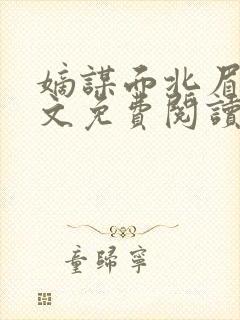 嫡謀西北眉
文免費閱讀
童歸寧